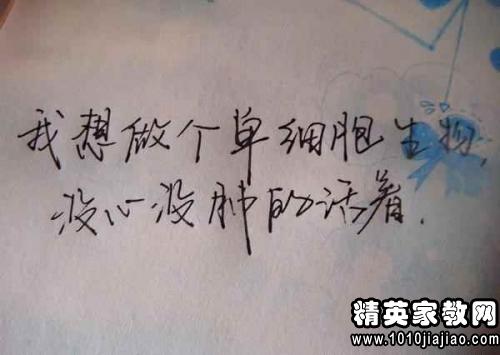 我想做个单细胞生物,
没心没肺的活着.
精英家教网
www.1010jiajiao.com